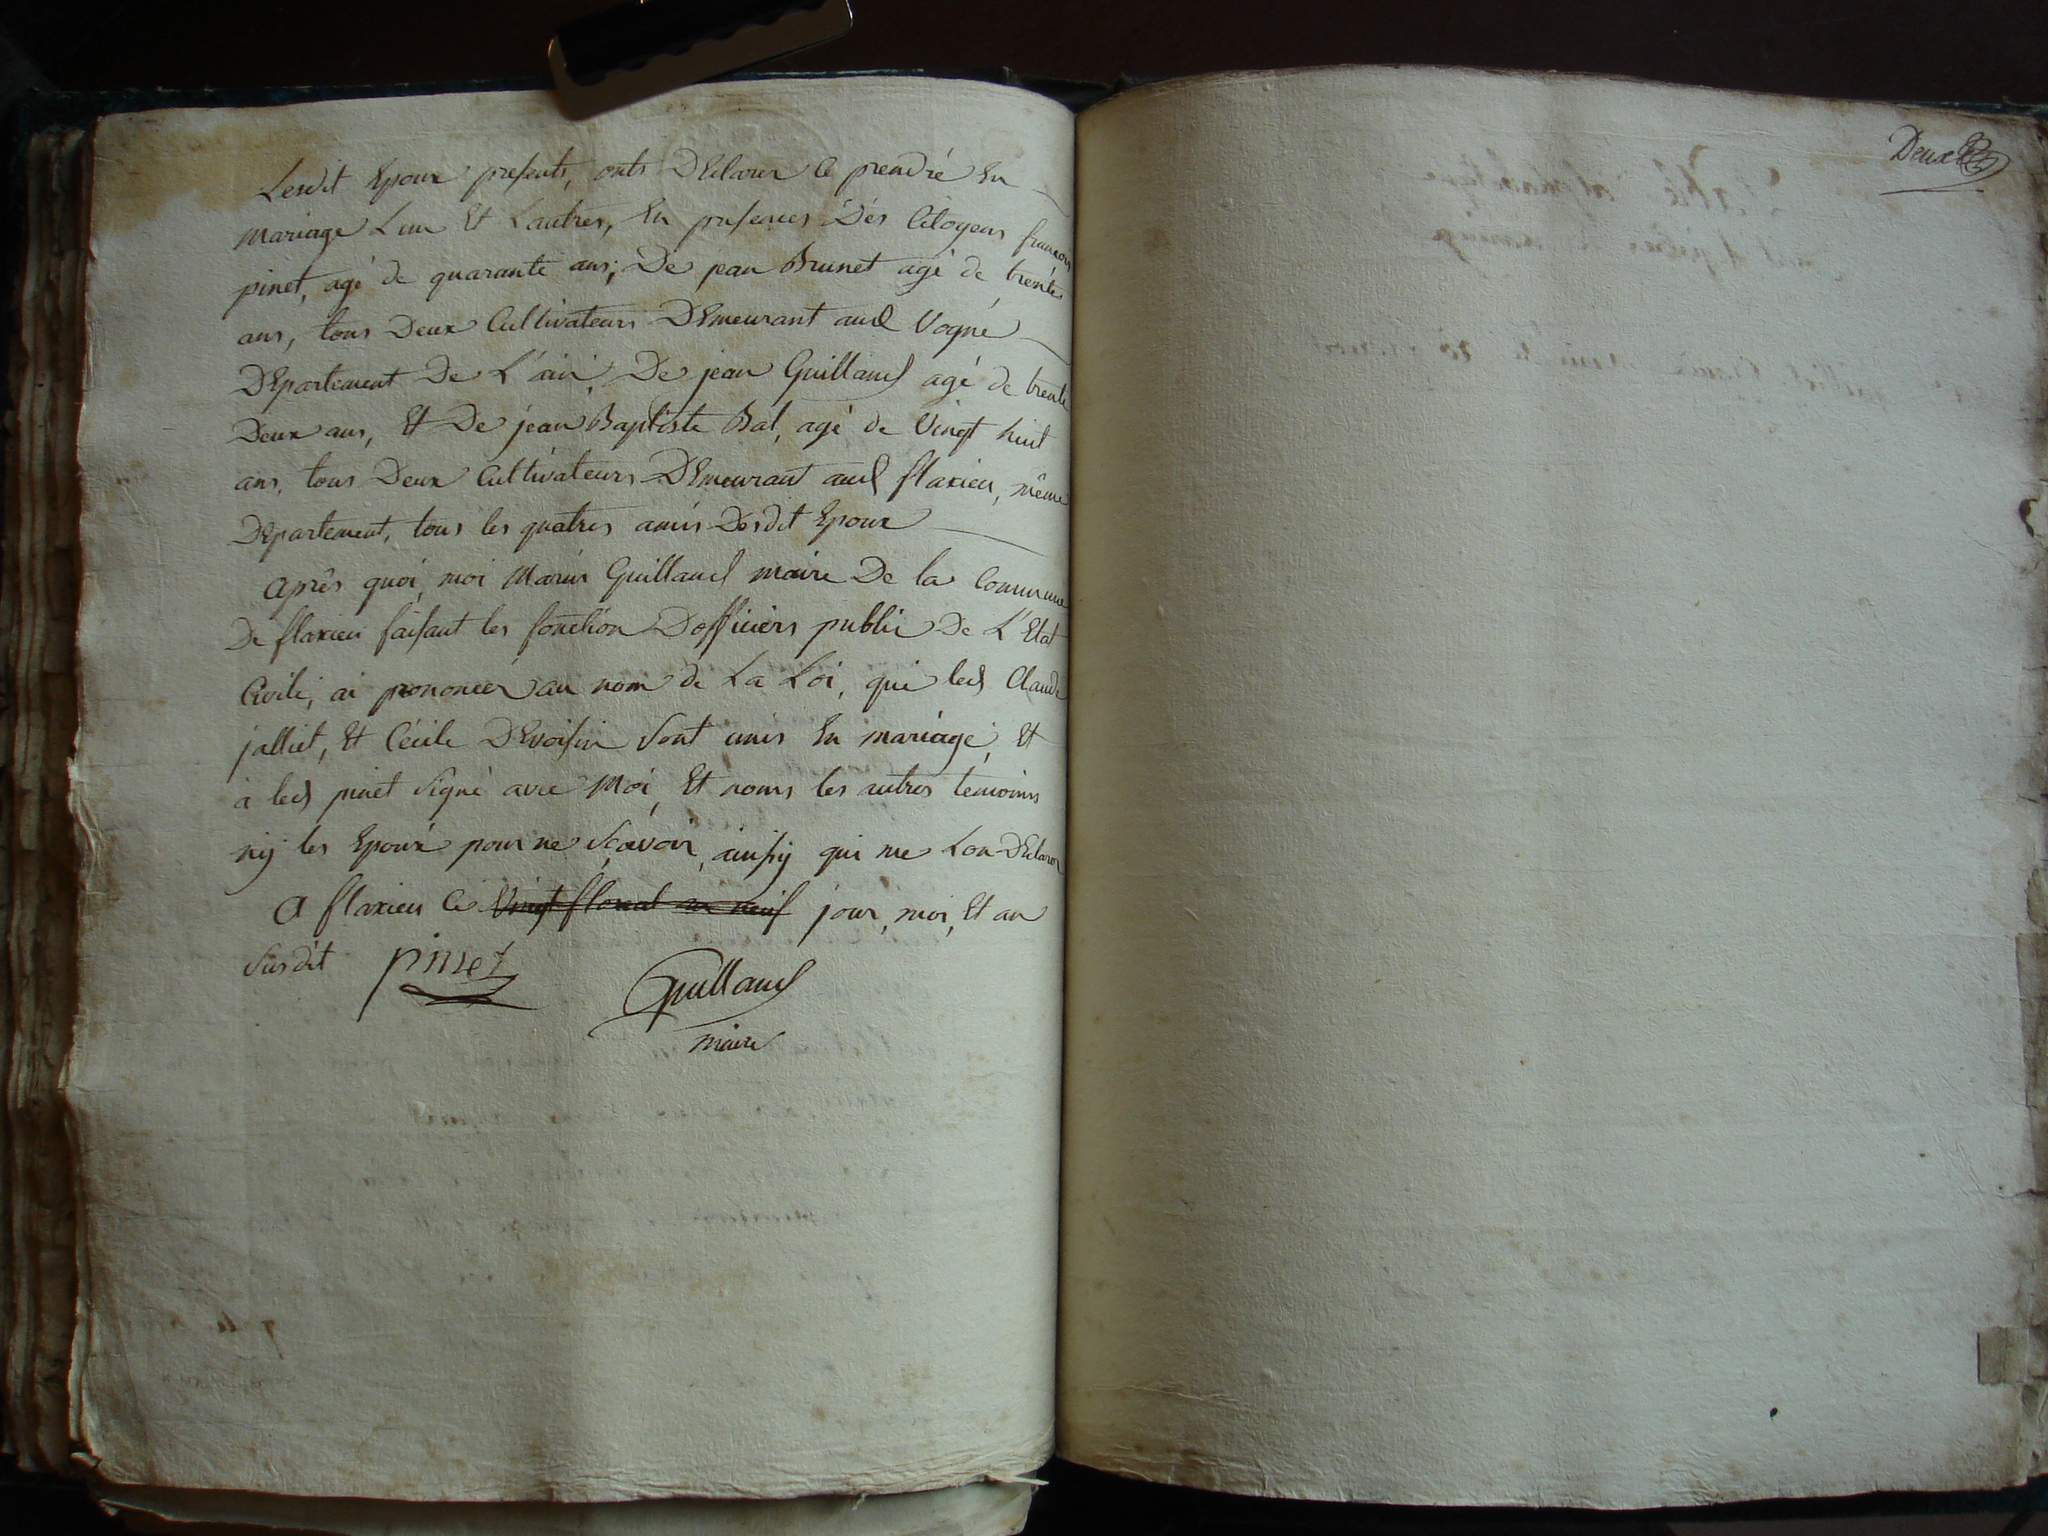 Lesdit Epoux presents, onts DEclarer Ce prendré En
Mariage Lun Et Lautres, En presences Dés Citoyens francois
pinet, agé de quarante ans; De jean Brunet agé de trentes
ans, tous Deux Cultivateurs DEmeurant aud Vogne
DEpartement De L'ain, De jean Guillaud agé de trente
Deux ans, Et De jean Baptiste Bal, agé de Vingt huit
ans, tous Deux Cultivateurs DEmeurant aud flaxieu, même
DEpartement, tous les quatres amis Desdit Epoux
Après quoi, moi Marin Guillaud maire De la Commune
De flaxieu faisant les fonction Dofficiers public De L'Etat
Civile, ai prononcer au nom de La Loi, que led Claude
jalliet, Et Cécile DEvoisin Sont unis En mariage, Et
à led pinet Signé avec Moi, Et nonns les autres temoinns
ny les Epoux pour ne Scavoir, ainsy qui me Lon DEclarer
A flaxieu Ce Vingt floréal an neuf jour, moi, Et an
Susdit pinet Guillaud
maire
Deux